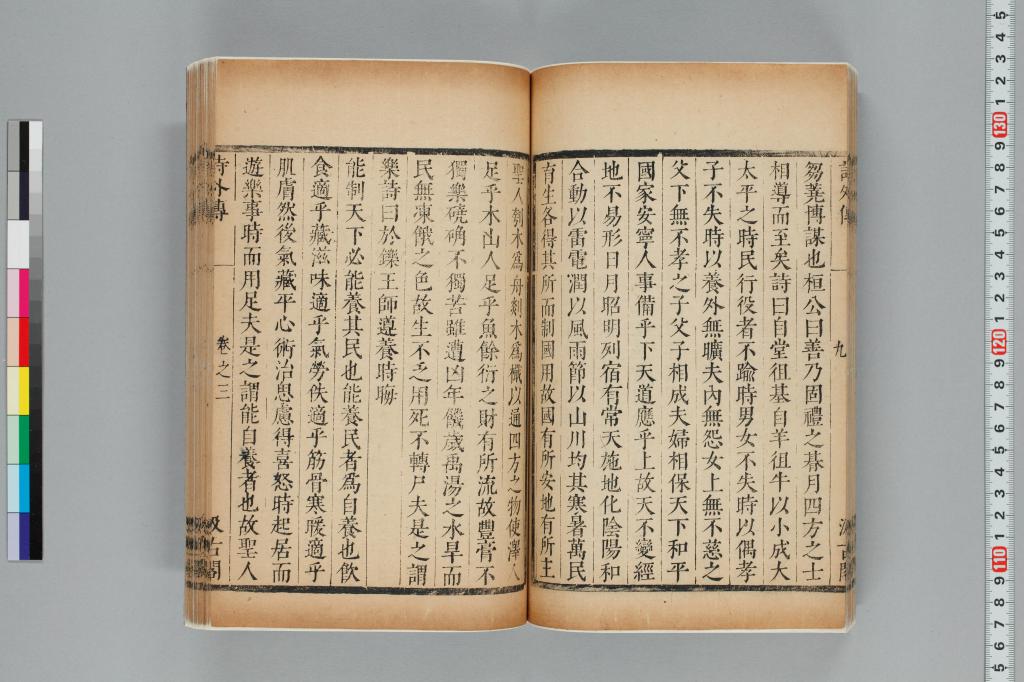 芻蕘博謀也桓公曰善乃固禮之朞月四方之士
相導而至矣詩曰自堂徂基自羊徂牛以小成大
太平之時民行役者不踰時男女不失時以偶孝
子不失時以養外無曠夫內無怨女上無不慈之
父下無不孝之子父子相成夫婦相保天下和平
國家安寧人事備乎下天道應乎上故天不變經
地不易形日月昭明列宿有常天施地化陰陽和
合動以雷電潤以風雨節以山川均其寒暑萬民
育生各得其所而制國用故國有所安地有所主
聖人刳木爲舟剡木爲檝以通四方之物使澤人
足乎木山人足乎魚餘衍之財有所流故豐膏不
獨樂磽确不獨苦雖遭凶年饑歲禹湯之水旱而
民無凍餓之色故生不乏用死不轉尸夫是之謂
樂詩曰於鑠王師遵養時晦
能制天下必能養其民也能養民者爲自養也飲
食適乎藏滋味適乎氣勞佚適乎筋骨寒暖適乎
肌膚然後氣藏平心術治思慮得喜怒時起居而
遊樂事時而用足夫是之謂能自養者也故聖人
詩外傳
卷之三
汲古閣
九